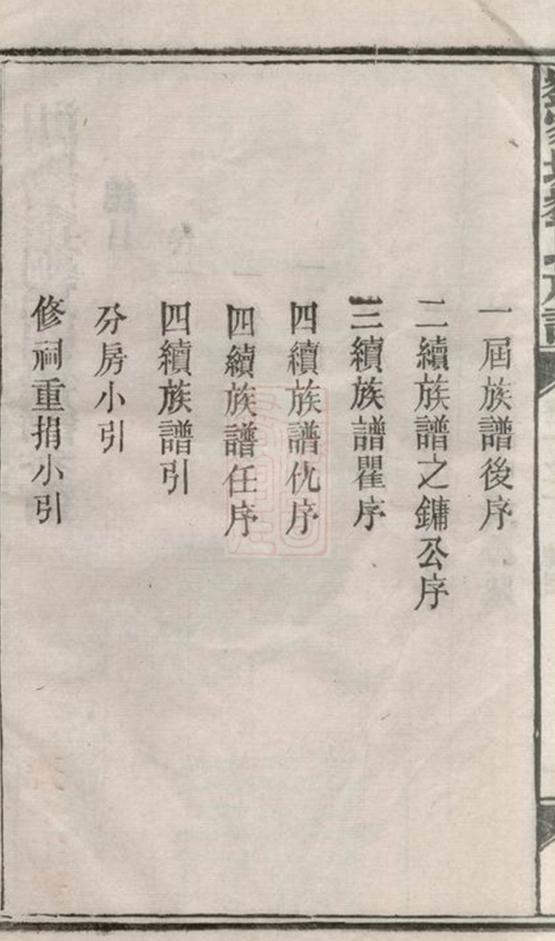 一屆族譜後序
二續族譜之鏞公序
三續族譜瞿序
四續族譜仇序
四續族譜任序
四續族譜引
分房小引
修祠重捐小引